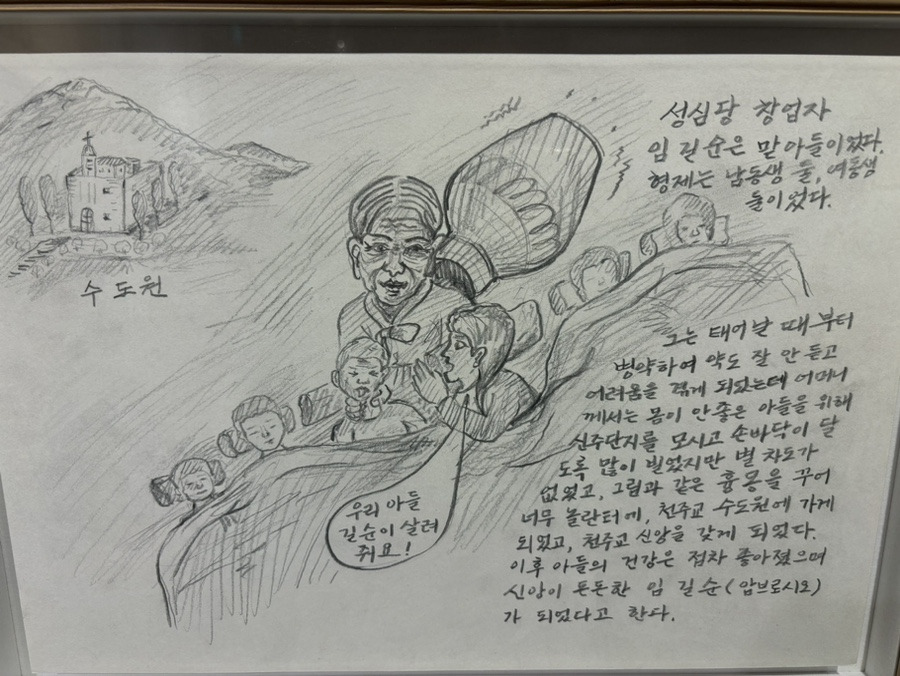 성심당 창업자
임길순은 맏아들이었다.
형제는 남동생 둘, 여동생
둘이었다.
수도원
그는 태어날 때부터
병약하여 약도 잘 안 듣고
어려움을 겪게 되었는데 어머니
께서는 몸이 안좋은 아들을 위해
신주단지를 모시고 손바닥이 닳
도록 많이 빌었지만 별 차도가
없었고, 그림과 같은 흉몽을 꾸어
너무 놀란터에, 천주교 수도원에 가게
되었고, 천주교 신앙을 갖게 되었다.
이후 아들의 건강은 점차 좋아졌으며
신앙이 돈돈한 임길순(암브로시오)
가 되었다고 한다.
우리 아들
길순이 살려
줘요!